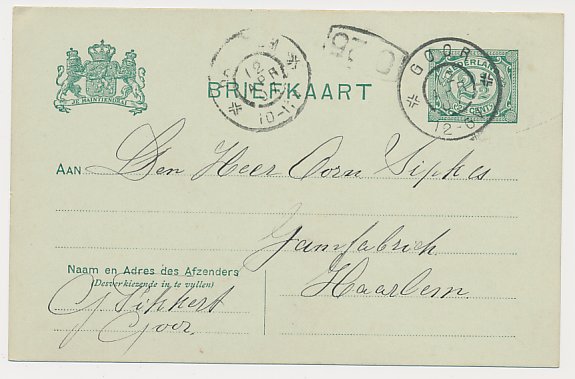 JE MAINTIENDRAI
BRIEFKAART
GOOR
12-6
NEDERLAND
12
10-11
AAN Den Heer Corn Sipkes
Jamfabriek
Haarlem.
Naam en Adres des Afzenders
(Desverkiezende in te vullen)
G Sippert
Goor